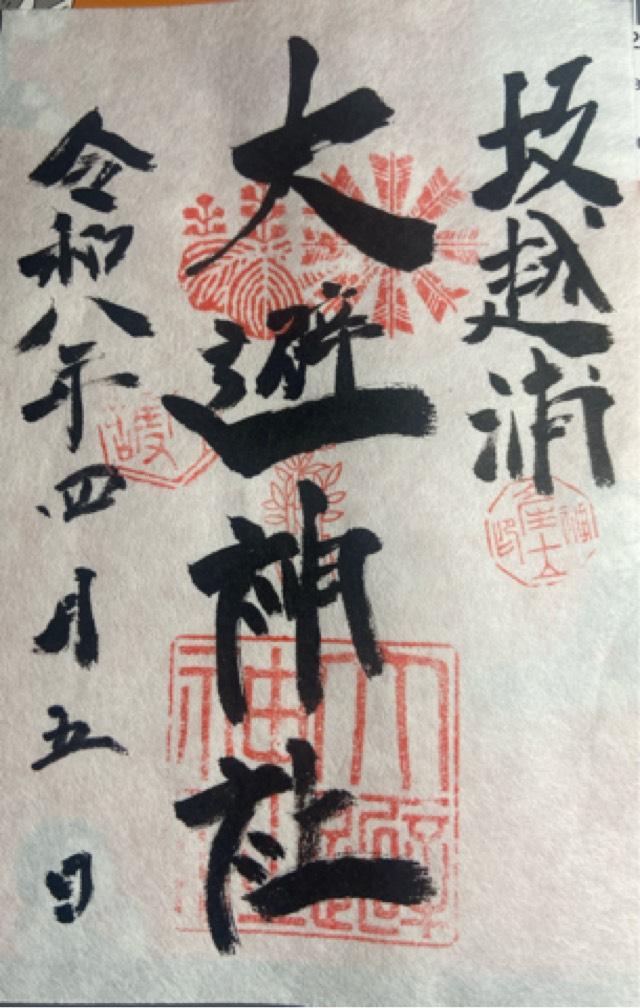 坂越浦
大避神社
令和八年四月五日
大避神社